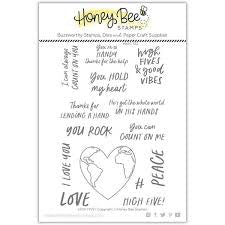 Honey Bee
STAMPS
Buzzworthy Stamps, Dies and Paper Craft Supplies
I can always
COUNT ON YOU
YOU'RE SO
HANDY
thanks for the help
HIGH
FIVES
& good
VIBES
YOU HOLD
my heart
Thanks for
LENDING A HAND
He's got the whole world
IN HIS HANDS
YOU ROCK
YOU can
COUNT ON ME
I LOVE YOU
# PEACE
LOVE
HIGH FIVE!